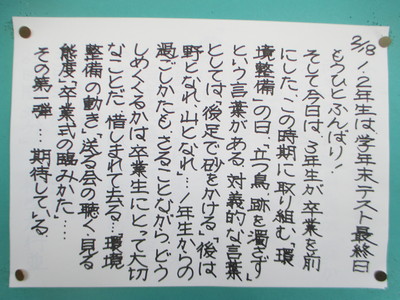 2/18 1、2年生は学年末テスト最終日
もうひとふんばり!
そして今日は、3年生が卒業を前
にした、この時期に取り組む、「環
境整備」の日「立つ鳥跡を濁さず」
という言葉がある。対義的な言葉
としては、「後足で砂をかける」「後は
野となれ、山となれ」…1年生からの
過ごしかたも、さることながら、どう
しめくくるかは卒業生にとって大切
なことだ。惜しまれて去る…「環境
整備の動き」「送る会の聴く・見る
態度」「卒業式の臨みかた」…
その第一弾…期待している。